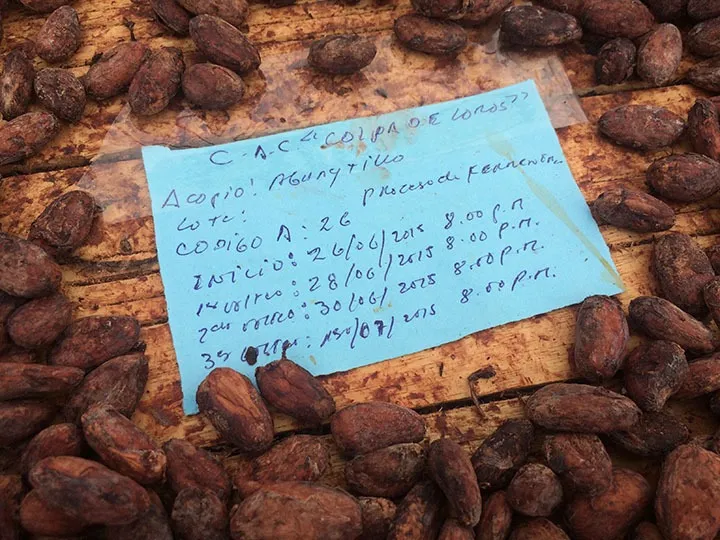 C.A.C "COLPA DE LOROS"
Acopio: Abunytillo
Lote: Proceso de Fermento
CODIGO A: 26
INICIO: 26/06/2015 8:00 P.M
1er volteo: 28/06/2015 8:00 P.M.
2do volteo: 30/06/2015 8:00 P.M.
3er /07/2015 8:00 P.M.